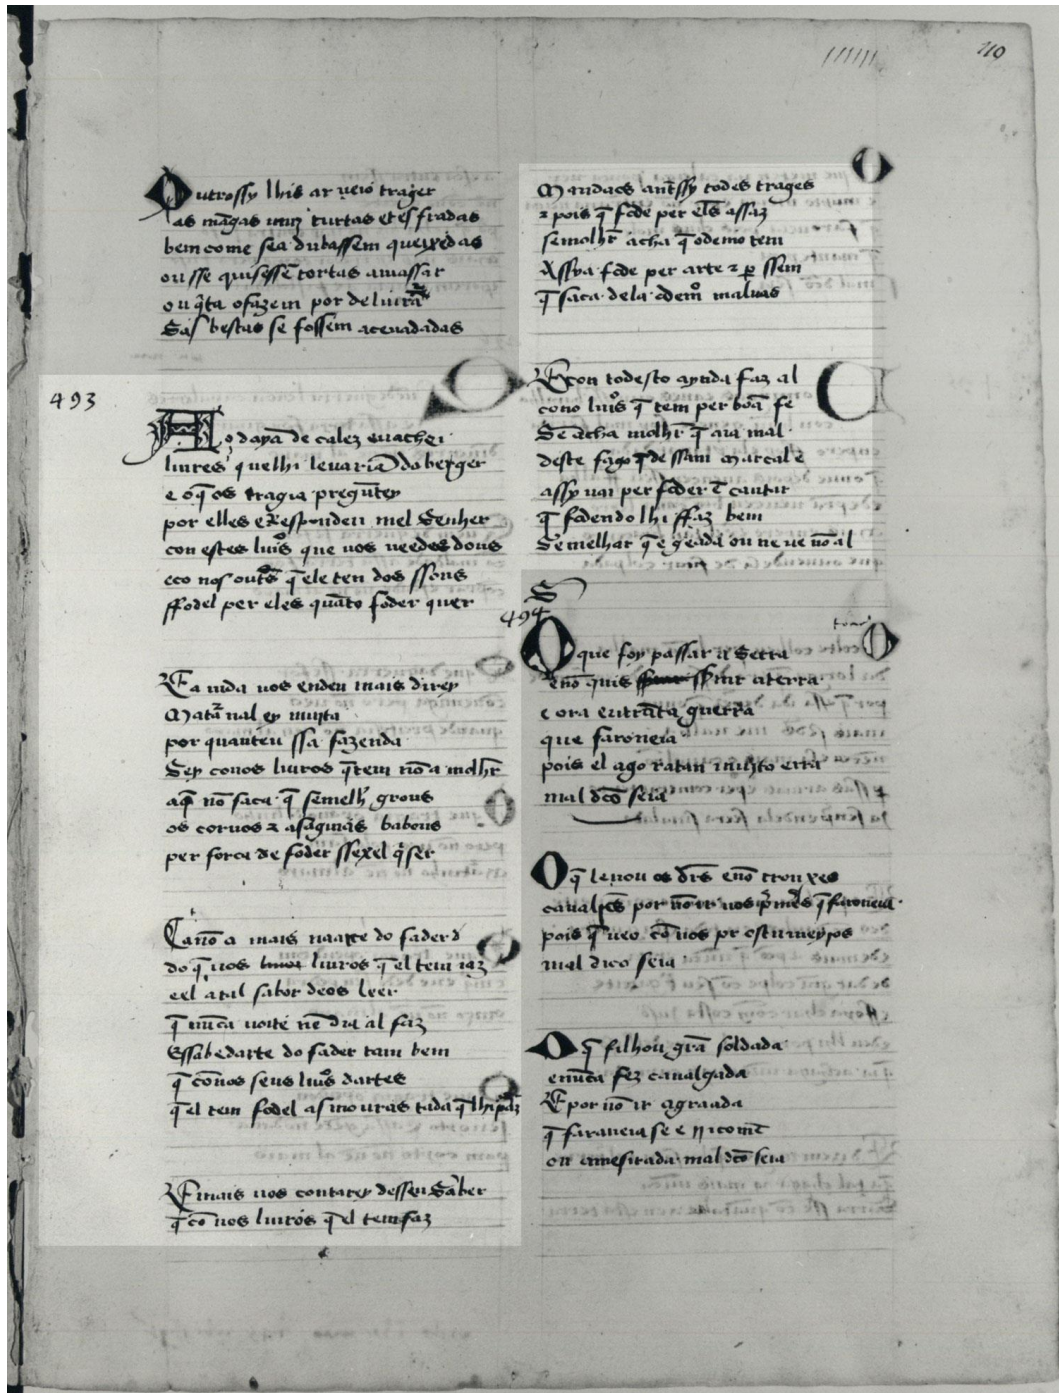 110
Outrossy lhis ar ueio trager
as mãgas muy curtas et esfradas
bem come sea dubassem queixadas
ou sse quisessẽ tortas amassar
ou q̃ta o fazem por deliurar
Sas bestas se fossem aceuadadas
493
Ao dayã de calez eu achei
liures que lhi leuariã da berger
e o q̃ os tragia pregũtey
por elles e Respondeu mel Senher
con estes liuros que uos ueedes dous
e co nos outros q̃ ele ten dos ssous
ffodel per eles quãto foder quer
E a inda uos endeu mais direy
Matã nal ey muyta
por quanteu ssa fazenda
Sey conos liuros q̃ tem nõ a molhr̃
a q̃ nõ faca q̃ semelh̃ grous
os coruos z as aguias babous
per força de foder sse xel q̃ser
Ca nõ a mais na arte do fader
do q̃ nos liuros q̃ el tem iaz
e el a tal sabor de os leer
q̃ nũca noite nẽ dia al faz
E ssabe darte do fader tam bem
q̃ cõ nos seus liuros dartes
q̃ el tem fodel as mouras cada q̃ lhi praz
E mais uos contarey de sseu Saber
q̃ cõ nos liuros q̃ el tem faz
Mandaos antẽssy todos trages
z pois q̃ fode per elẽs assaz
se molhr̃ acha q̃ o demo tem
Assy a fode per arte z per ssem
q̃ saca dela o demo maluas
E con todesto aynda faz al
cono liuros q̃ tem per boã fe
Se acha molhr̃ q̃ aia mal
deste fago q̃ de ssam Marcal e
assy uai per foder ẽcantar
q̃ fodendo lhi ffaz bem
Semelhar q̃ e geada ou neue nõ al
494
O que foy passar a Serra
e nõ quis seruir a terra
e ora entrãta guerra
que faroneia
pois el agora tan muyto erra
mal dicõ seia
O q̃ leuou os drs̃ e nõ trouxes
caualrẽs por nõ ir nos primeyros q̃ faroneia
pois q̃ ueo cõ nos prostumeyros
mal dico seia
O q̃ filhou grã soldada
e nũca fez caualgada
E por nõ ir a graada
q̃ faraneia se e rricomẽ
ou amesnada mal dicõ seia